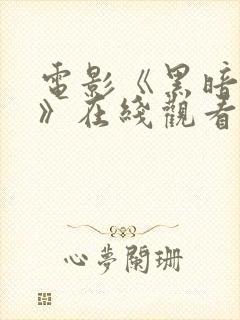 電影《黑暗
》在綫觀看
心夢闌珊